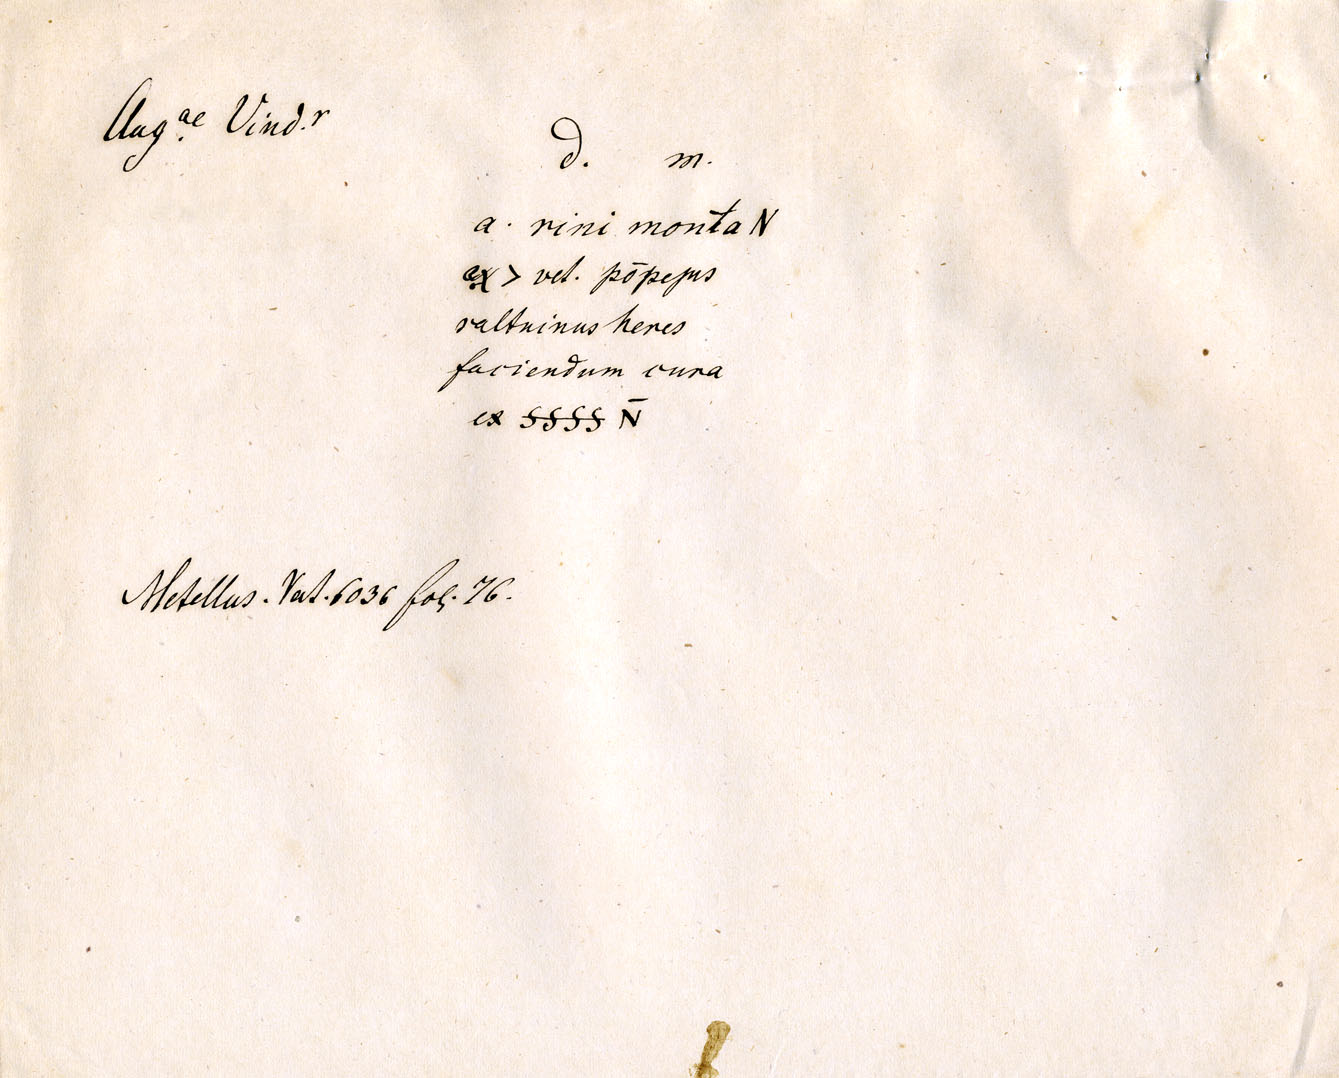 Aug.ae Vind.r
d. m.
a. rini montaN
ex > vet. pōpejus
saltuinus heres
faciendum cura
ex §§§§ N̄
Metellus. Vat. 6036 fol. 76.